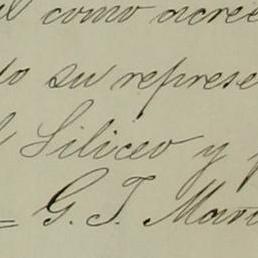 como acree
su represe
Siliceo y
= G. T. Man